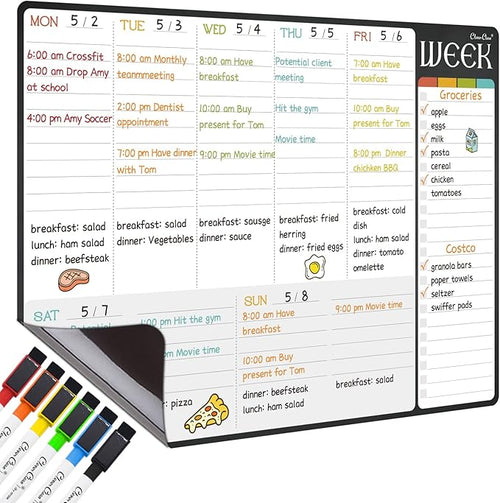 MON 5/2
6:00 am Crossfit
8:00 am Drop Amy
at school
4:00 pm Amy Soccer
breakfast: salad
lunch: ham salad
dinner: beefsteak
TUE 5/3
8:00 am Monthly
teanmmeeting
2:00 pm Dentist
appointment
7:00 pm Have dinner
with Tom
breakfast: salad
dinner: Vegetables
WED 5/4
8:00 am Have
breakfast
10:00 am Buy
present for Tom
9:00 pm Movie time
breakfast: sausge
dinner: sauce
THU 5/5
Potential client
meeting
Hit the gym
Movie time
breakfast: fried
herring
dinner: fried eggs
FRI 5/6
7:00 am Have
breakfast
10:00 am Buy
present for Tom
8:00 pm Dinner
chichken BBQ
breakfast: cold
dish
lunch: ham salad
dinner: tomato
omelette
WEEK
Groceries
apple
eggs
milk
pasta
cereal
chicken
tomatoes
Costco
granola bars
paper towels
seltzer
swiffer pads
SAT 5/7
Potential
1:00 pm Hit the gym
pm Movie time
: pizza
SUN 5/8
8:00 am Have
breakfast
10:00 am Buy
present for Tom
9:00 pm Movie time
dinner: beefsteak
lunch: ham salad
breakfast: salad